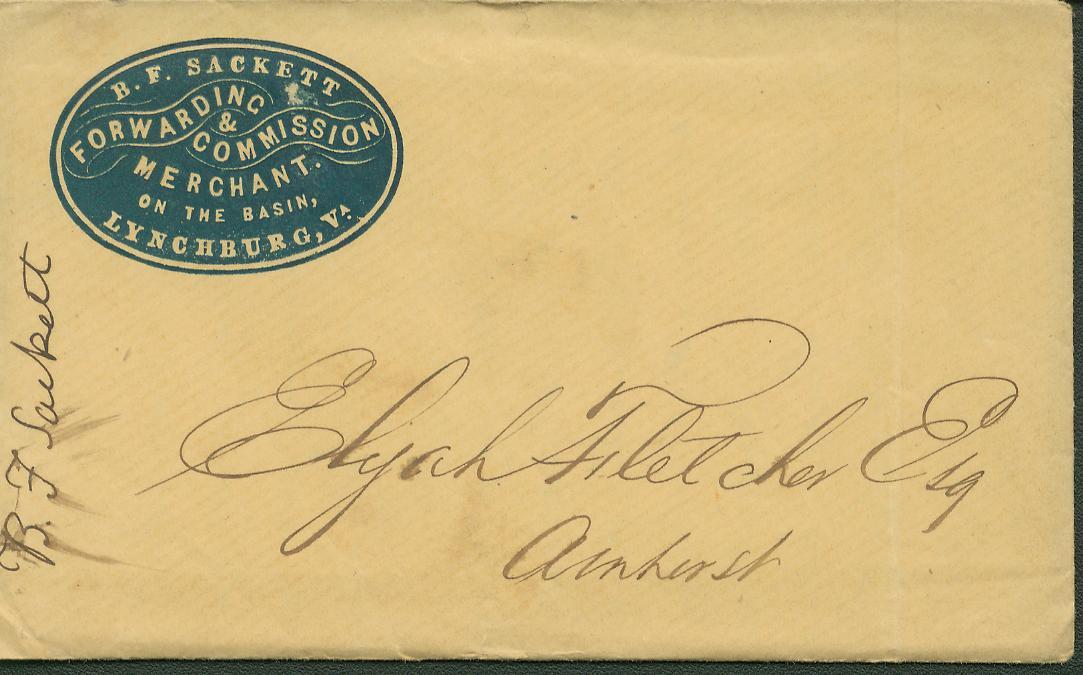 B. F. SACKETT
FORWARDING
&
COMMISSION
MERCHANT.
ON THE BASIN,
LYNCHBURG, VA.
B. F Sackett
Elijah Fletcher Esq
Amherst